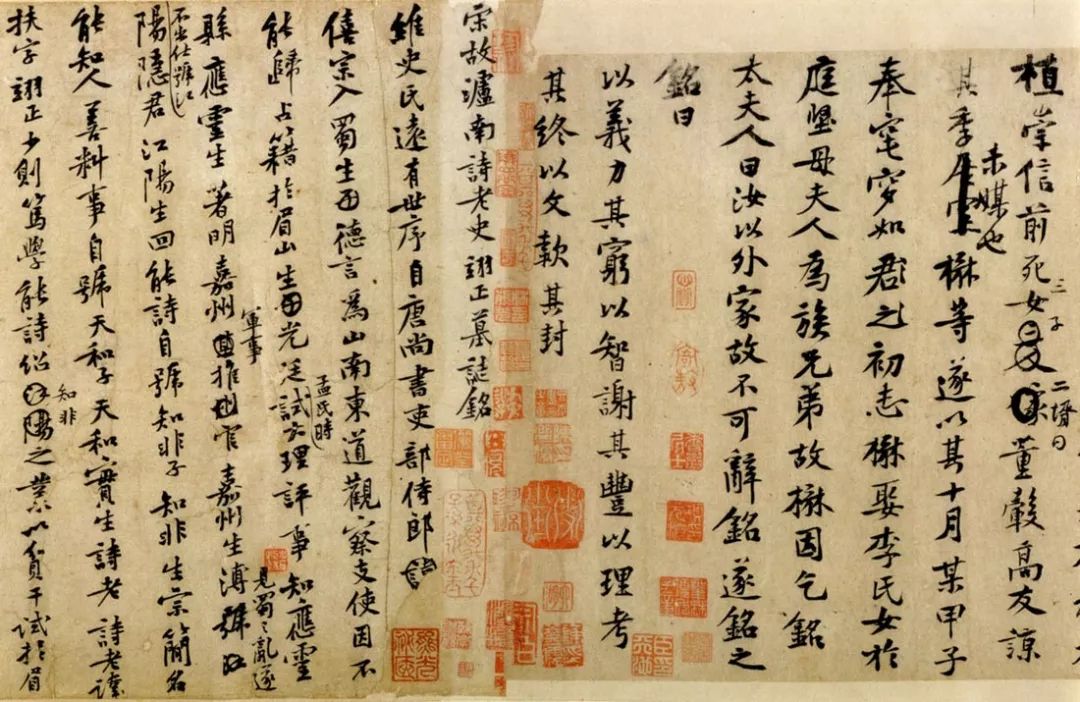 植崇信前死女董毅高友諒
三子
二壻曰
其季
未媒也
楙等遂以其十月某甲子
奉窀穸如君之初志楙娶李氏女於
庭堅母夫人為族兄弟故楙因乞銘
太夫人曰汝以外家故不可辭銘遂銘之
銘曰
以義力其窮以智謝其豐以理考
其終以文款其封
宋故瀘南詩老史翊正墓誌銘
維史氏遠有世序自唐尚書吏部侍郎
僖宗入蜀生德言為山南東道觀察支使因不
能歸占籍於眉山生光廷試大理評事知應靈
孟氏時
縣應靈生著明嘉州推官嘉州生溥
軍事
見蜀之亂遂
不出仕號江
陽隱君江陽生回能詩自號知非子知非生宗簡名
能知人善料事自號天和子天和實生詩老詩老諱
扶字翊正少則篤學能詩紹之業以貧干試於眉
知非